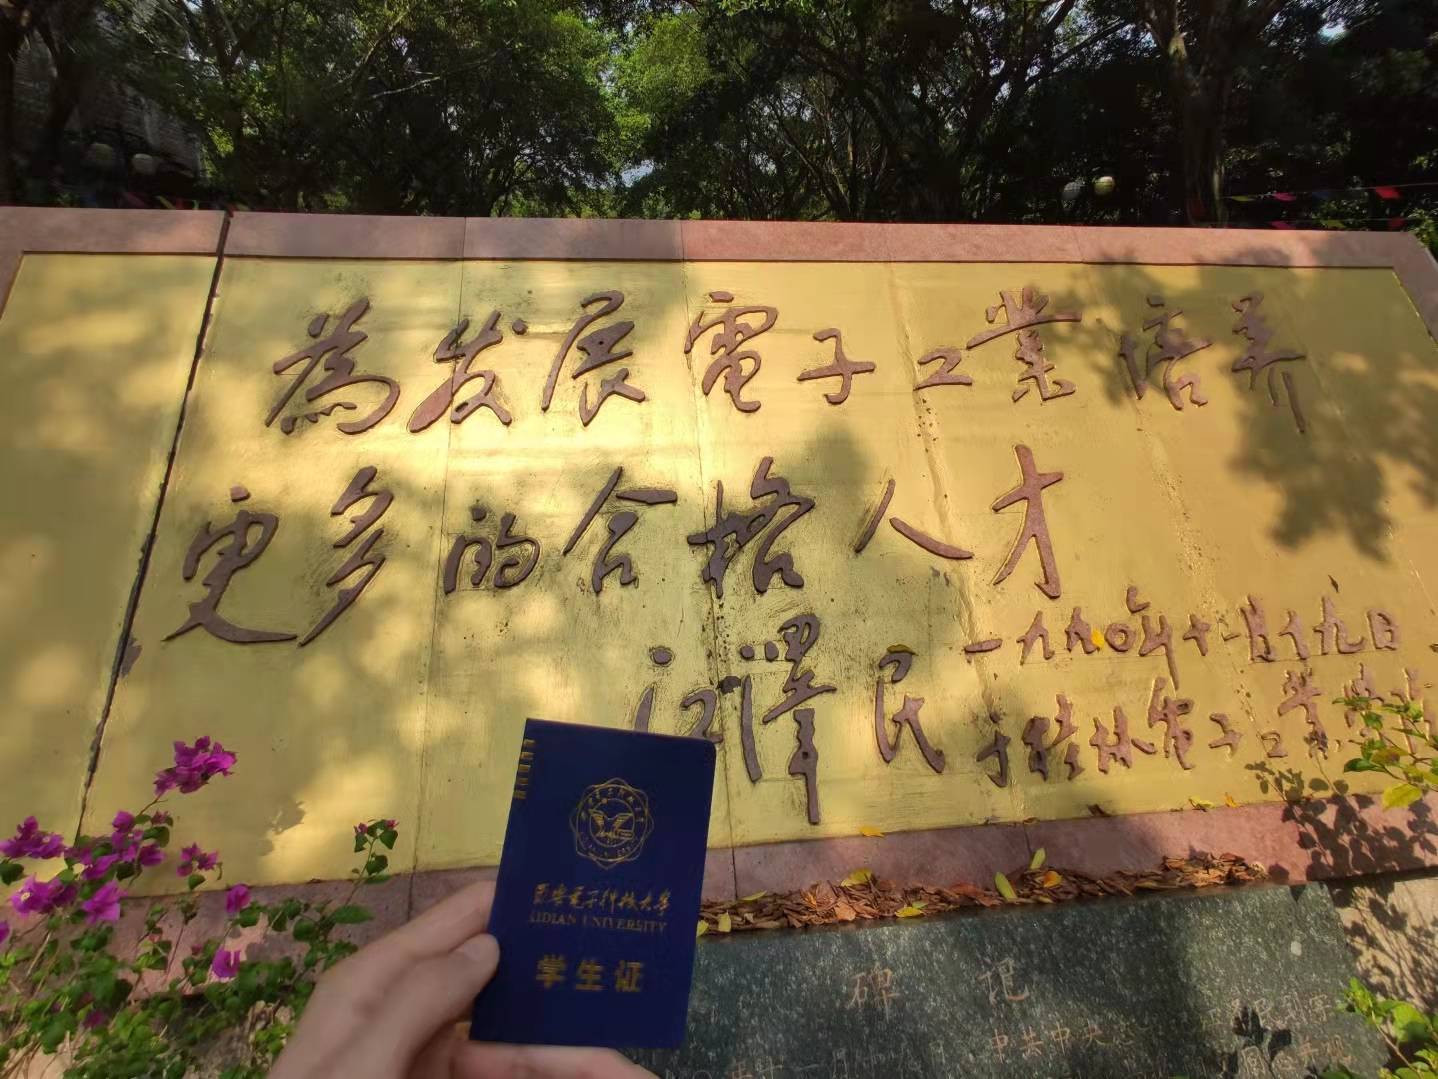 為发展電子工業培养
更多的合格人才
江澤民
一九九〇年十一月十九日
于桂林電子工業学
西安电子科技大学
XIDIAN UNIVERSITY
学生证
碑 记
中共中央总